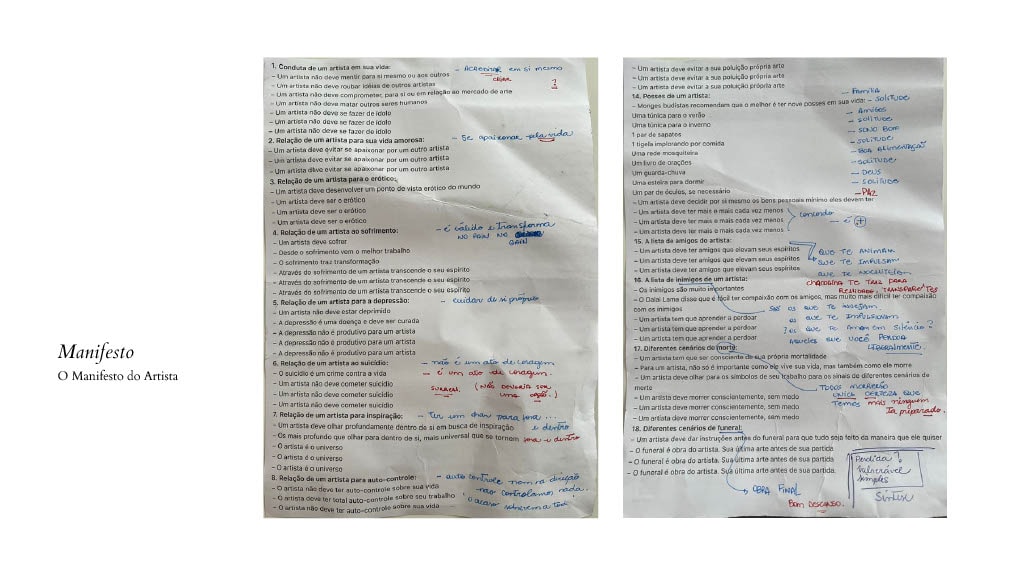 Manifesto
O Manifesto do Artista
1. Conduta de um artista em sua vida: - ACREDITAR em si mesmo
– Um artista não deve mentir para si mesmo ou aos outros CRIAR
– Um artista não deve roubar idéias de outros artistas ?
– Um artista não deve comprometer, para si ou em relação ao mercado de arte
– Um artista não deve matar outros seres humanos
– Um artista não deve se fazer de ídolo
– Um artista não deve se fazer de ídolo
– Um artista não deve se fazer de ídolo
2. Relação de um artista para sua vida amorosa: - Se apaixonar pela vida
– Um artista deve evitar se apaixonar por um outro artista
– Um artista deve evitar se apaixonar por um outro artista
– Um artista deve evitar se apaixonar por um outro artista
3. Relação de um artista para o erótico:
– Um artista deve desenvolver um ponto de vista erótico do mundo
– Um artista deve ser o erótico
– Um artista deve ser o erótico
– Um artista deve ser o erótico
4. Relação de um artista ao sofrimento: - é válido e transforma
– Um artista deve sofrer NO PAIN NO GAIN
– Desde o sofrimento vem o melhor trabalho
– O sofrimento traz transformação
– Através do sofrimento de um artista transcende o seu espírito
– Através do sofrimento de um artista transcende o seu espírito
– Através do sofrimento de um artista transcende o seu espírito
5. Relação de um artista para a depressão: - cuidar de si próprio
– Um artista não deve estar deprimido
– A depressão é uma doença e deve ser curada
– A depressão não é produtivo para um artista
– A depressão não é produtivo para um artista
– A depressão não é produtivo para um artista
6. Relação de um artista ao suicídio: - não é um ato de coragem
– O suicídio é um crime contra a vida - é um ato de coragem.
– Um artista não deve cometer suicídio SURREAL (NÃO DEVERIA SER
– Um artista não deve cometer suicídio UMA OPÇÃO.)
– Um artista não deve cometer suicídio
7. Relação de um artista para inspiração: - Ter um olhar para fora ...
– Um artista deve olhar profundamente dentro de si em busca de inspiração e dentro
– Os mais profundo que olhar para dentro de si, mais universal que se tornem fora e dentro
– O artista é o universo
– O artista é o universo
– O artista é o universo
8. Relação de um artista para auto-controle: - auto controle
– O artista não deve ter auto-controle sobre sua vida - não controlamos nada.
– O artista deve ter total auto-controle sobre seu trabalho
– O artista não deve ter auto-controle sobre sua vida
– Um artista deve evitar a sua poluição própria arte
– Um artista deve evitar a sua poluição própria arte
– Um artista deve evitar a sua poluição própria arte
14. Posses de um artista: - Família
– Monges budistas recomendem que o melhor é ter nove posses em sua vida: - SOLITUDE
Uma túnica para o verão - Amigos
Uma túnica para o inverno - SOLITUDE
1 par de sapatos - SONO BOM
1 tigela implorando por comida - SOLITUDE
Uma rede mosquiteira - BOA ALIMENTAÇÃO
Um livro de orações - SOLITUDE
Um guarda-chuva - DEUS
Uma esteira para dormir - SOLITUDE
Um par de óculos, se necessário - PAZ
– Um artista deve decidir por si mesmo os bens pessoais mínimo eles devem ter
– Um artista deve ter mais e mais cada vez menos
– Um artista deve ter mais e mais cada vez menos - é +
– Um artista deve ter mais e mais cada vez menos
15. A lista de amigos do artista:
– Um artista deve ter amigos que elevam seus espíritos QUE TE ANIMAM
– Um artista deve ter amigos que elevam seus espíritos QUE TE IMPULSAM
– Um artista deve ter amigos que elevam seus espíritos QUE TE
16. A lista de inimigos de um artista: TE TRAZ PARA
– Os inimigos são muito importantes REALIDADE.
– O Dalai Lama disse que é fácil ter compaixão com os amigos, mas muito mais difícil ter compaixão
com os inimigos SÃO OS QUE TE
– Um artista tem que aprender a perdoar OS QUE TE
– Um artista tem que aprender a perdoar os QUE TE Amam em Silêncio?
– Um artista tem que aprender a perdoar Aqueles QUE VOCÊ PERDOA
17. Diferentes cenários de morte: LIBERALMENTE.
– Um artista tem que ser consciente de sua própria mortalidade
– Para um artista, não só é importante como ele vive sua vida, mas também como ele morre
– Um artista deve olhar para os símbolos de seu trabalho para os sinais de diferentes cenários de
morte TODOS MORRERÃO
– Um artista deve morrer conscientemente, sem medo ÚNICA CERTEZA QUE
– Um artista deve morrer conscientemente, sem medo TEMOS mas ninguém
– Um artista deve morrer conscientemente, sem medo Tá preparado.
18. Diferentes cenários de funeral:
– Um artista deve dar instruções antes do funeral para que tudo seja feito da maneira que ele quiser
– O funeral é obra do artista. Sua última arte antes de sua partida
– O funeral é obra do artista. Sua última arte antes de sua partida Perdida?
– O funeral é obra do artista. Sua última arte antes de sua partida. Vulnerável
simples
OBRA FINAL Síntese
BOM DESCANSO.